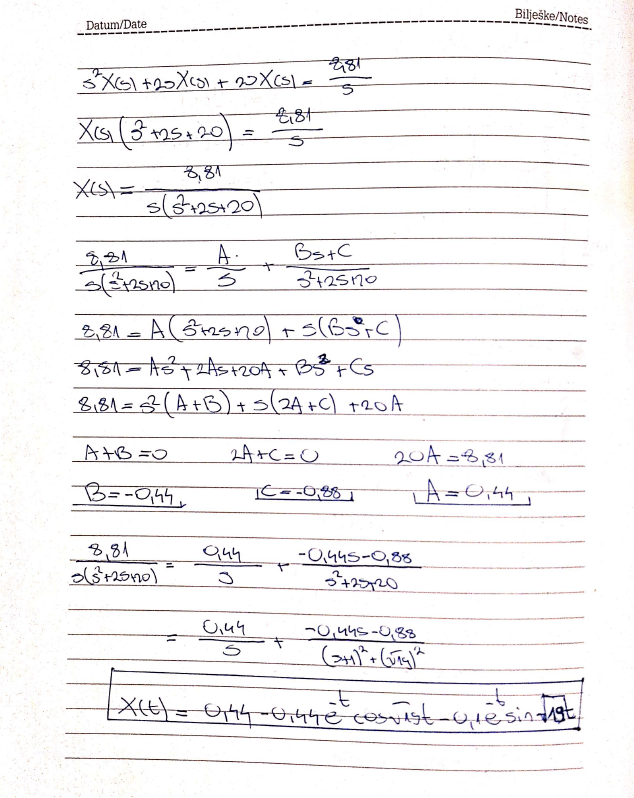 Datum/Date Bilješke/Notes
s²X(s) + 2sX(s) + 20X(s) = 8,81/s
X(s) (s²+2s+20) = 8,81/s
X(s) = 8,81/s(s²+2s+20)
8,81/s(s²+2s+20) = A/s + Bs+C/s²+2s+20
8,81 = A(s²+2s+20) + s(Bs+C)
8,81 = As² + 2As + 20A + Bs² + Cs
8,81 = s²(A+B) + s(2A+C) + 20A
A+B=0 2A+C=0 20A=8,81
B=-0,44 C=-0,88 A=0,44
8,81/s(s²+2s+20) = 0,44/s + -0,44s-0,88/s²+2s+20
= 0,44/s + -0,44s-0,88/(s+1)²+(√19)²
X(t) = 0,44 - 0,44 e^-t cos√19t - 0,1 e^-t sin√19t